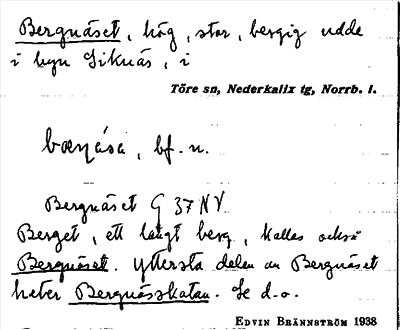 Bergnäset, hög, stor, bergig udde
i byn Siknäs, i
Töre sn, Nederkalix tg, Norrb. l.
bf. n.
Bergnäset G 37 NV
Berget, ett långt berg, kallas också
Bergnäset. Yttersta delen av Bergnäset
heter Bergnässkatan. Se d.o.
EDVIN BRÄNNSTRÖM 1938